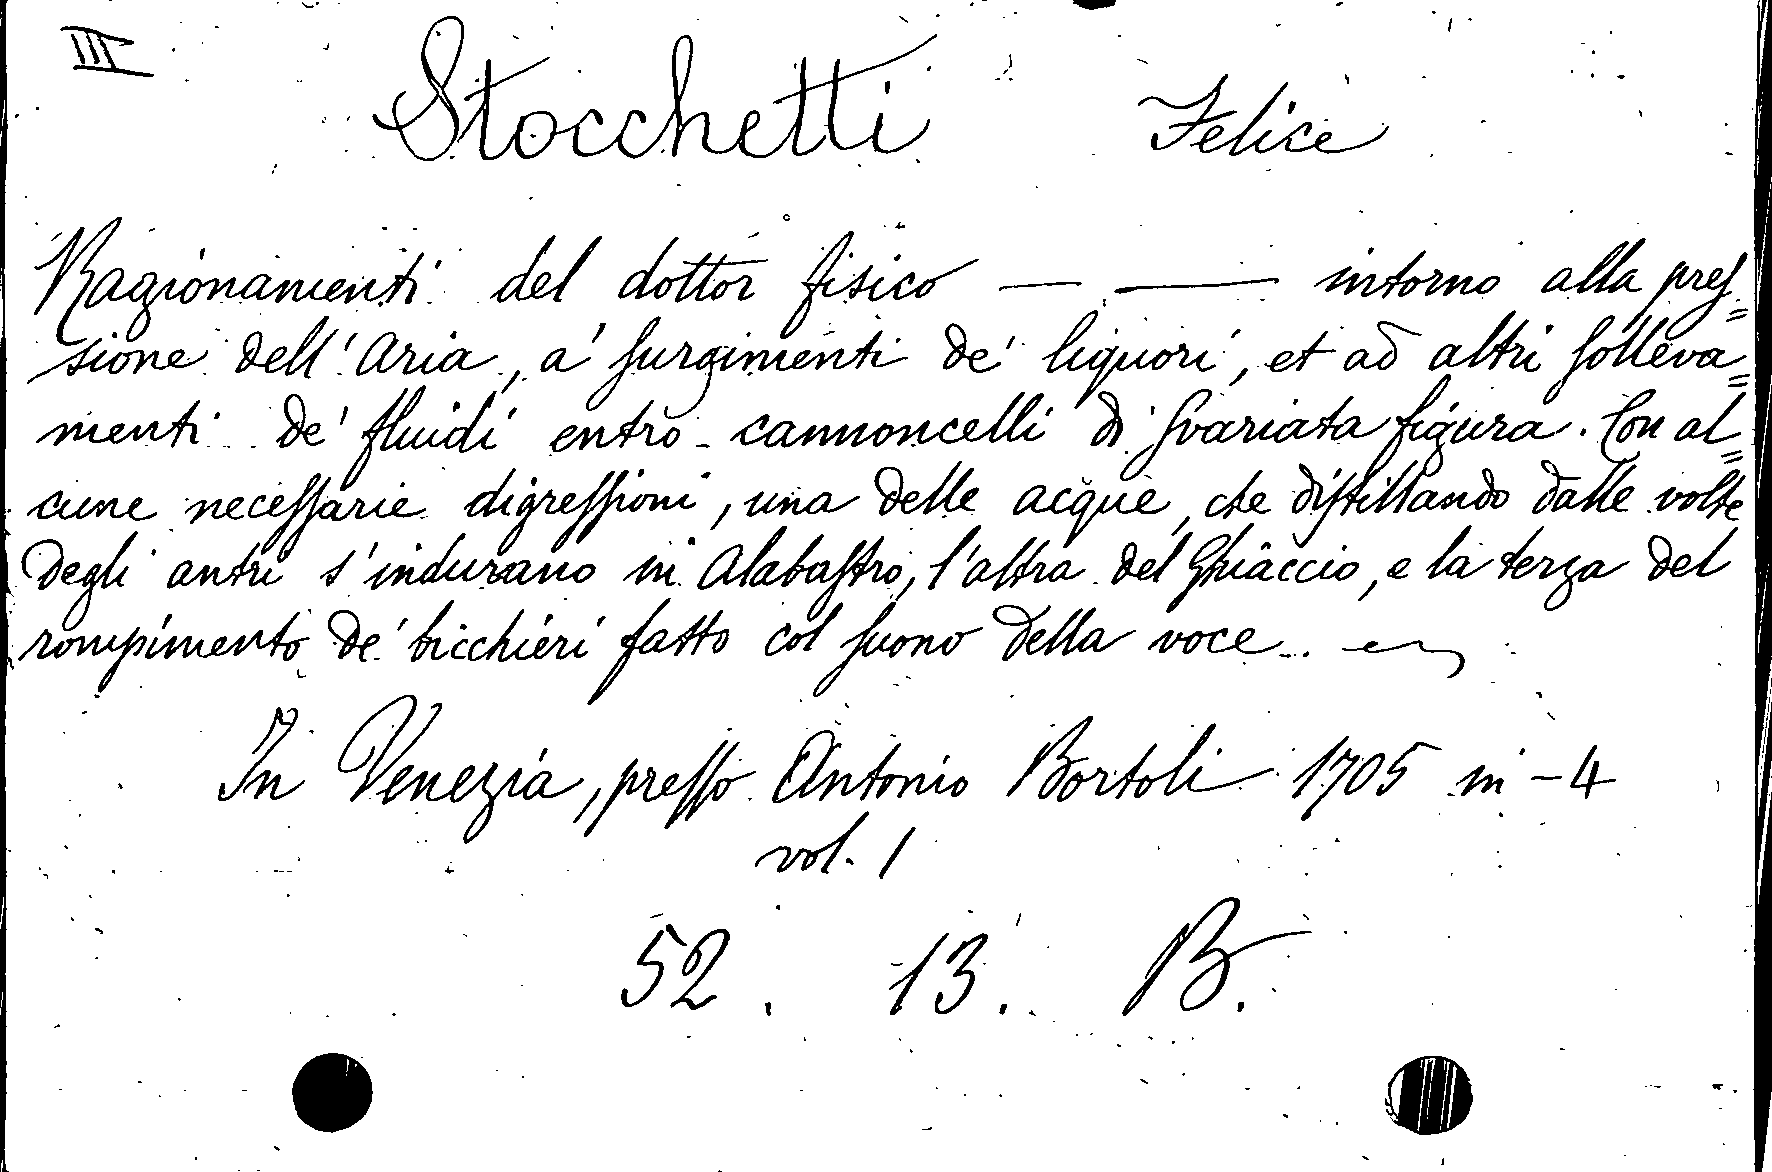 III
Stocchetti Felice
Ragionamenti del dottor fisico — — intorno alla pres=
sione dell'Aria, a' surgimenti de' liquori, et ad altri solleva=
menti de' fluidi entro cannoncelli di svariata figura. Con al=
cune necessarie digressioni, una delle acque, che distillando dalle volte
degli antri s'indurano in Alabastro, l'altra del Ghiaccio, e la terza del
rompimento de' bicchieri fatto col suono della voce.
In Venezia, presso Antonio Bortoli 1705 in-4
vol. 1
52. 13. B.